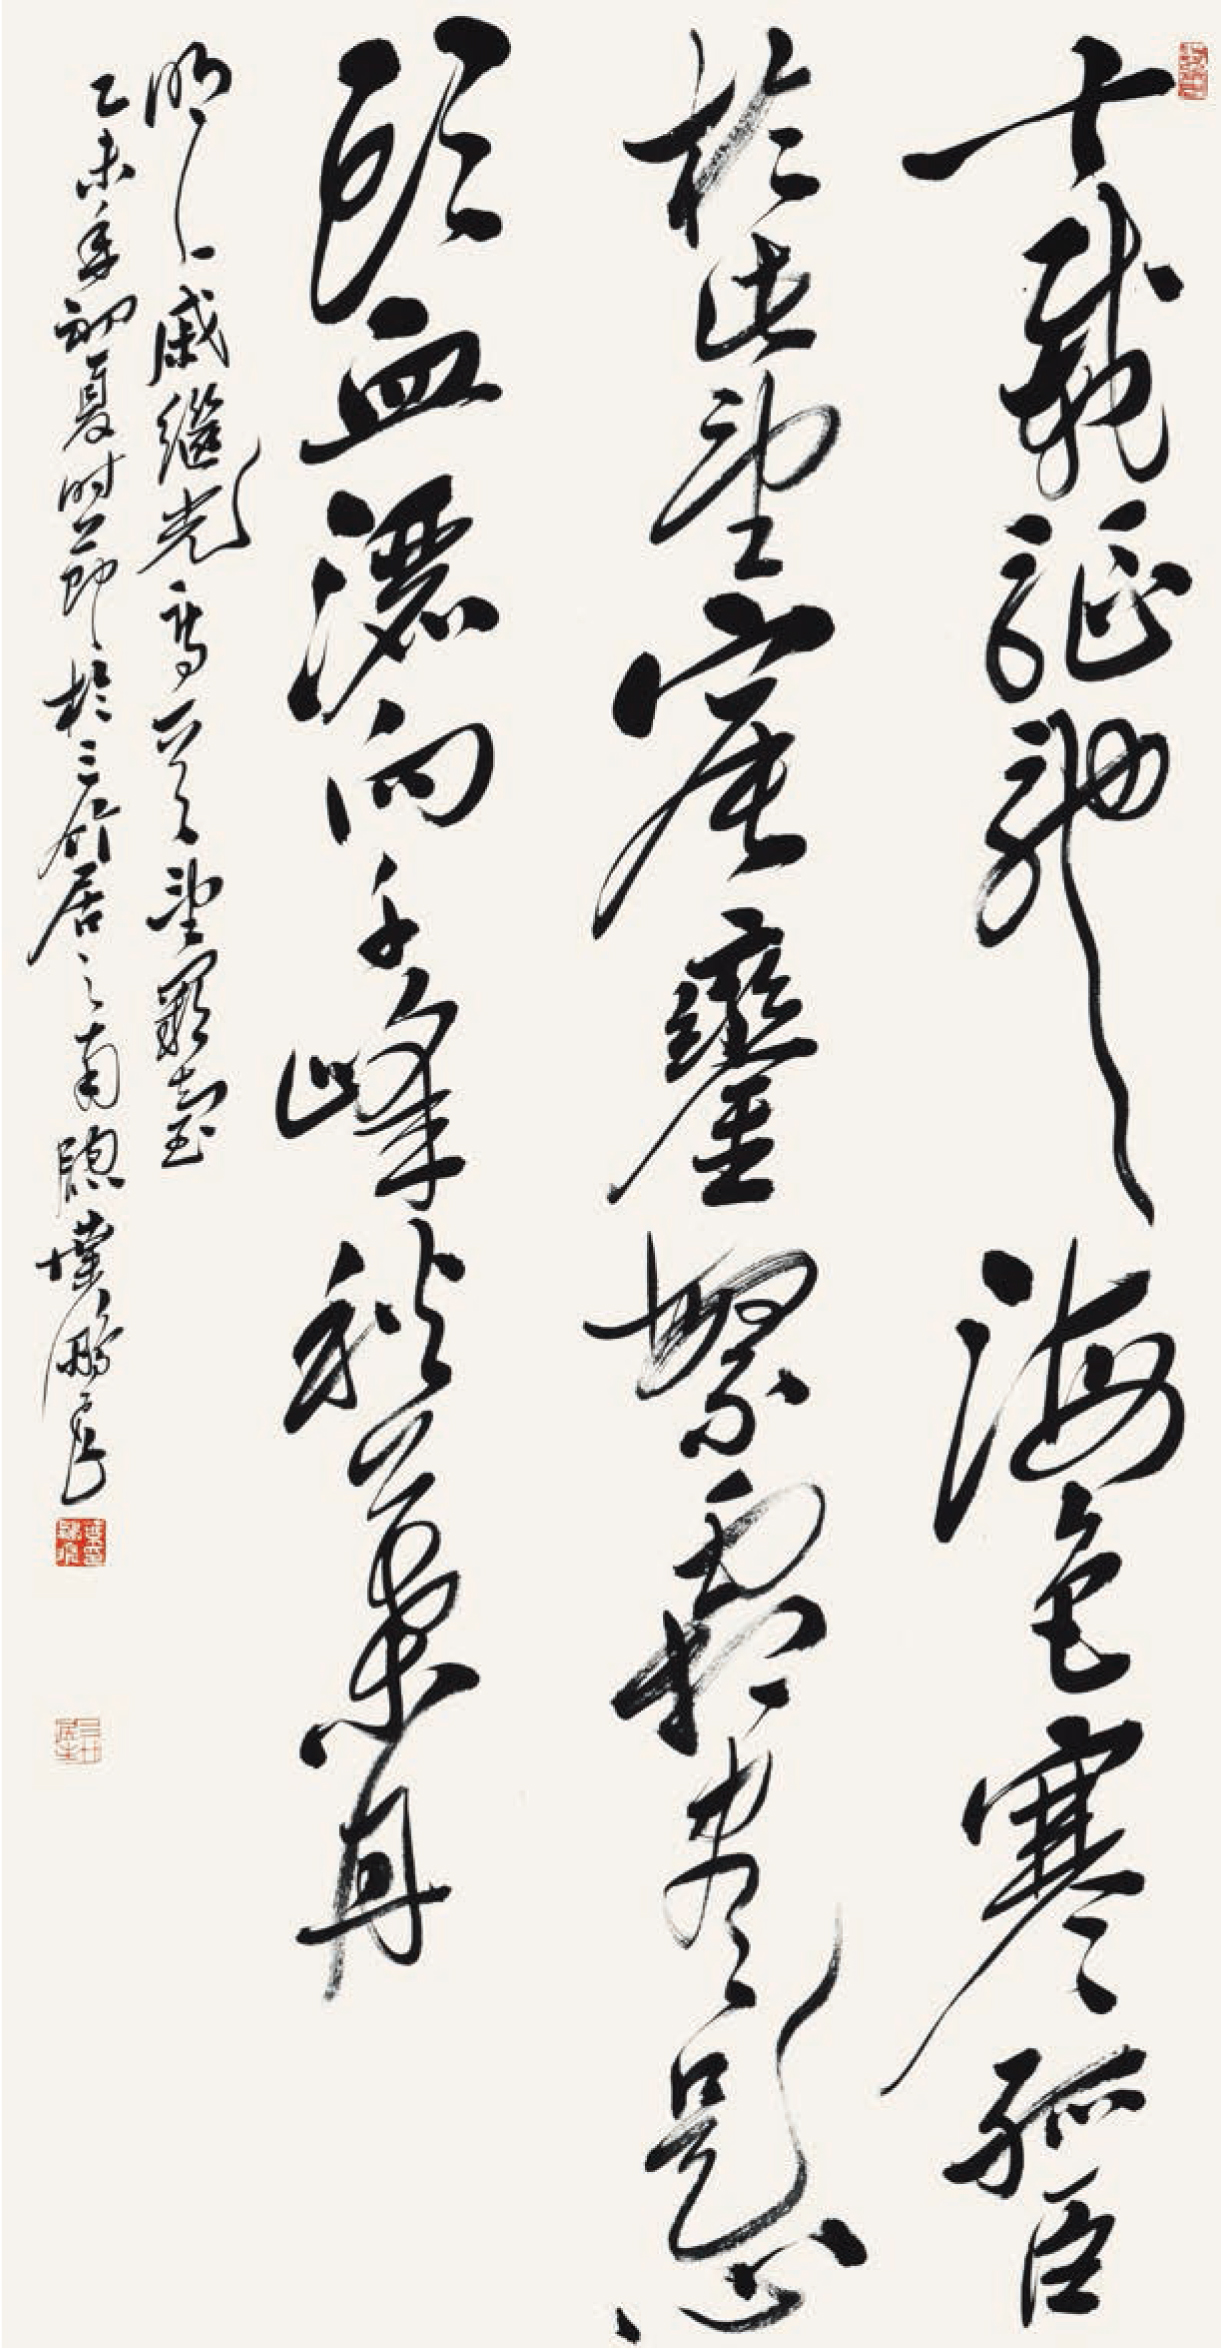 十載驅馳海色寒孤臣
於此望宸鑾繁霜盡是心
頭血灑向千峰秋葉丹
明戚繼光望闕臺
乙未年初夏時節於三竹居之南牕葉鵬飛